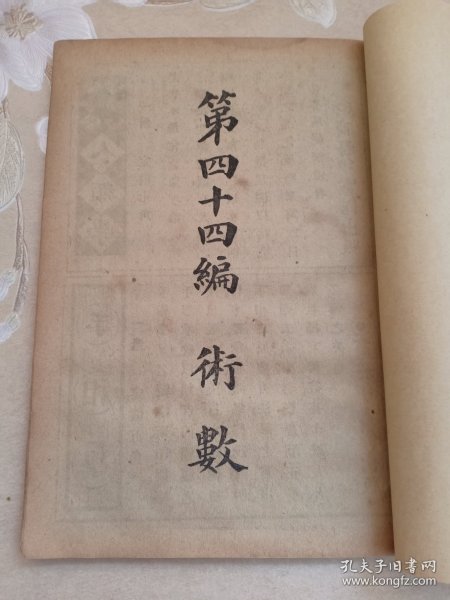 第四十四編 術數
孔夫子旧书网
www.kongfz.com